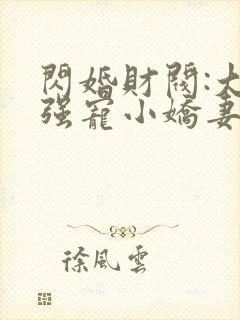 閃婚財閥:大
强寵小嬌妻
徐風雲